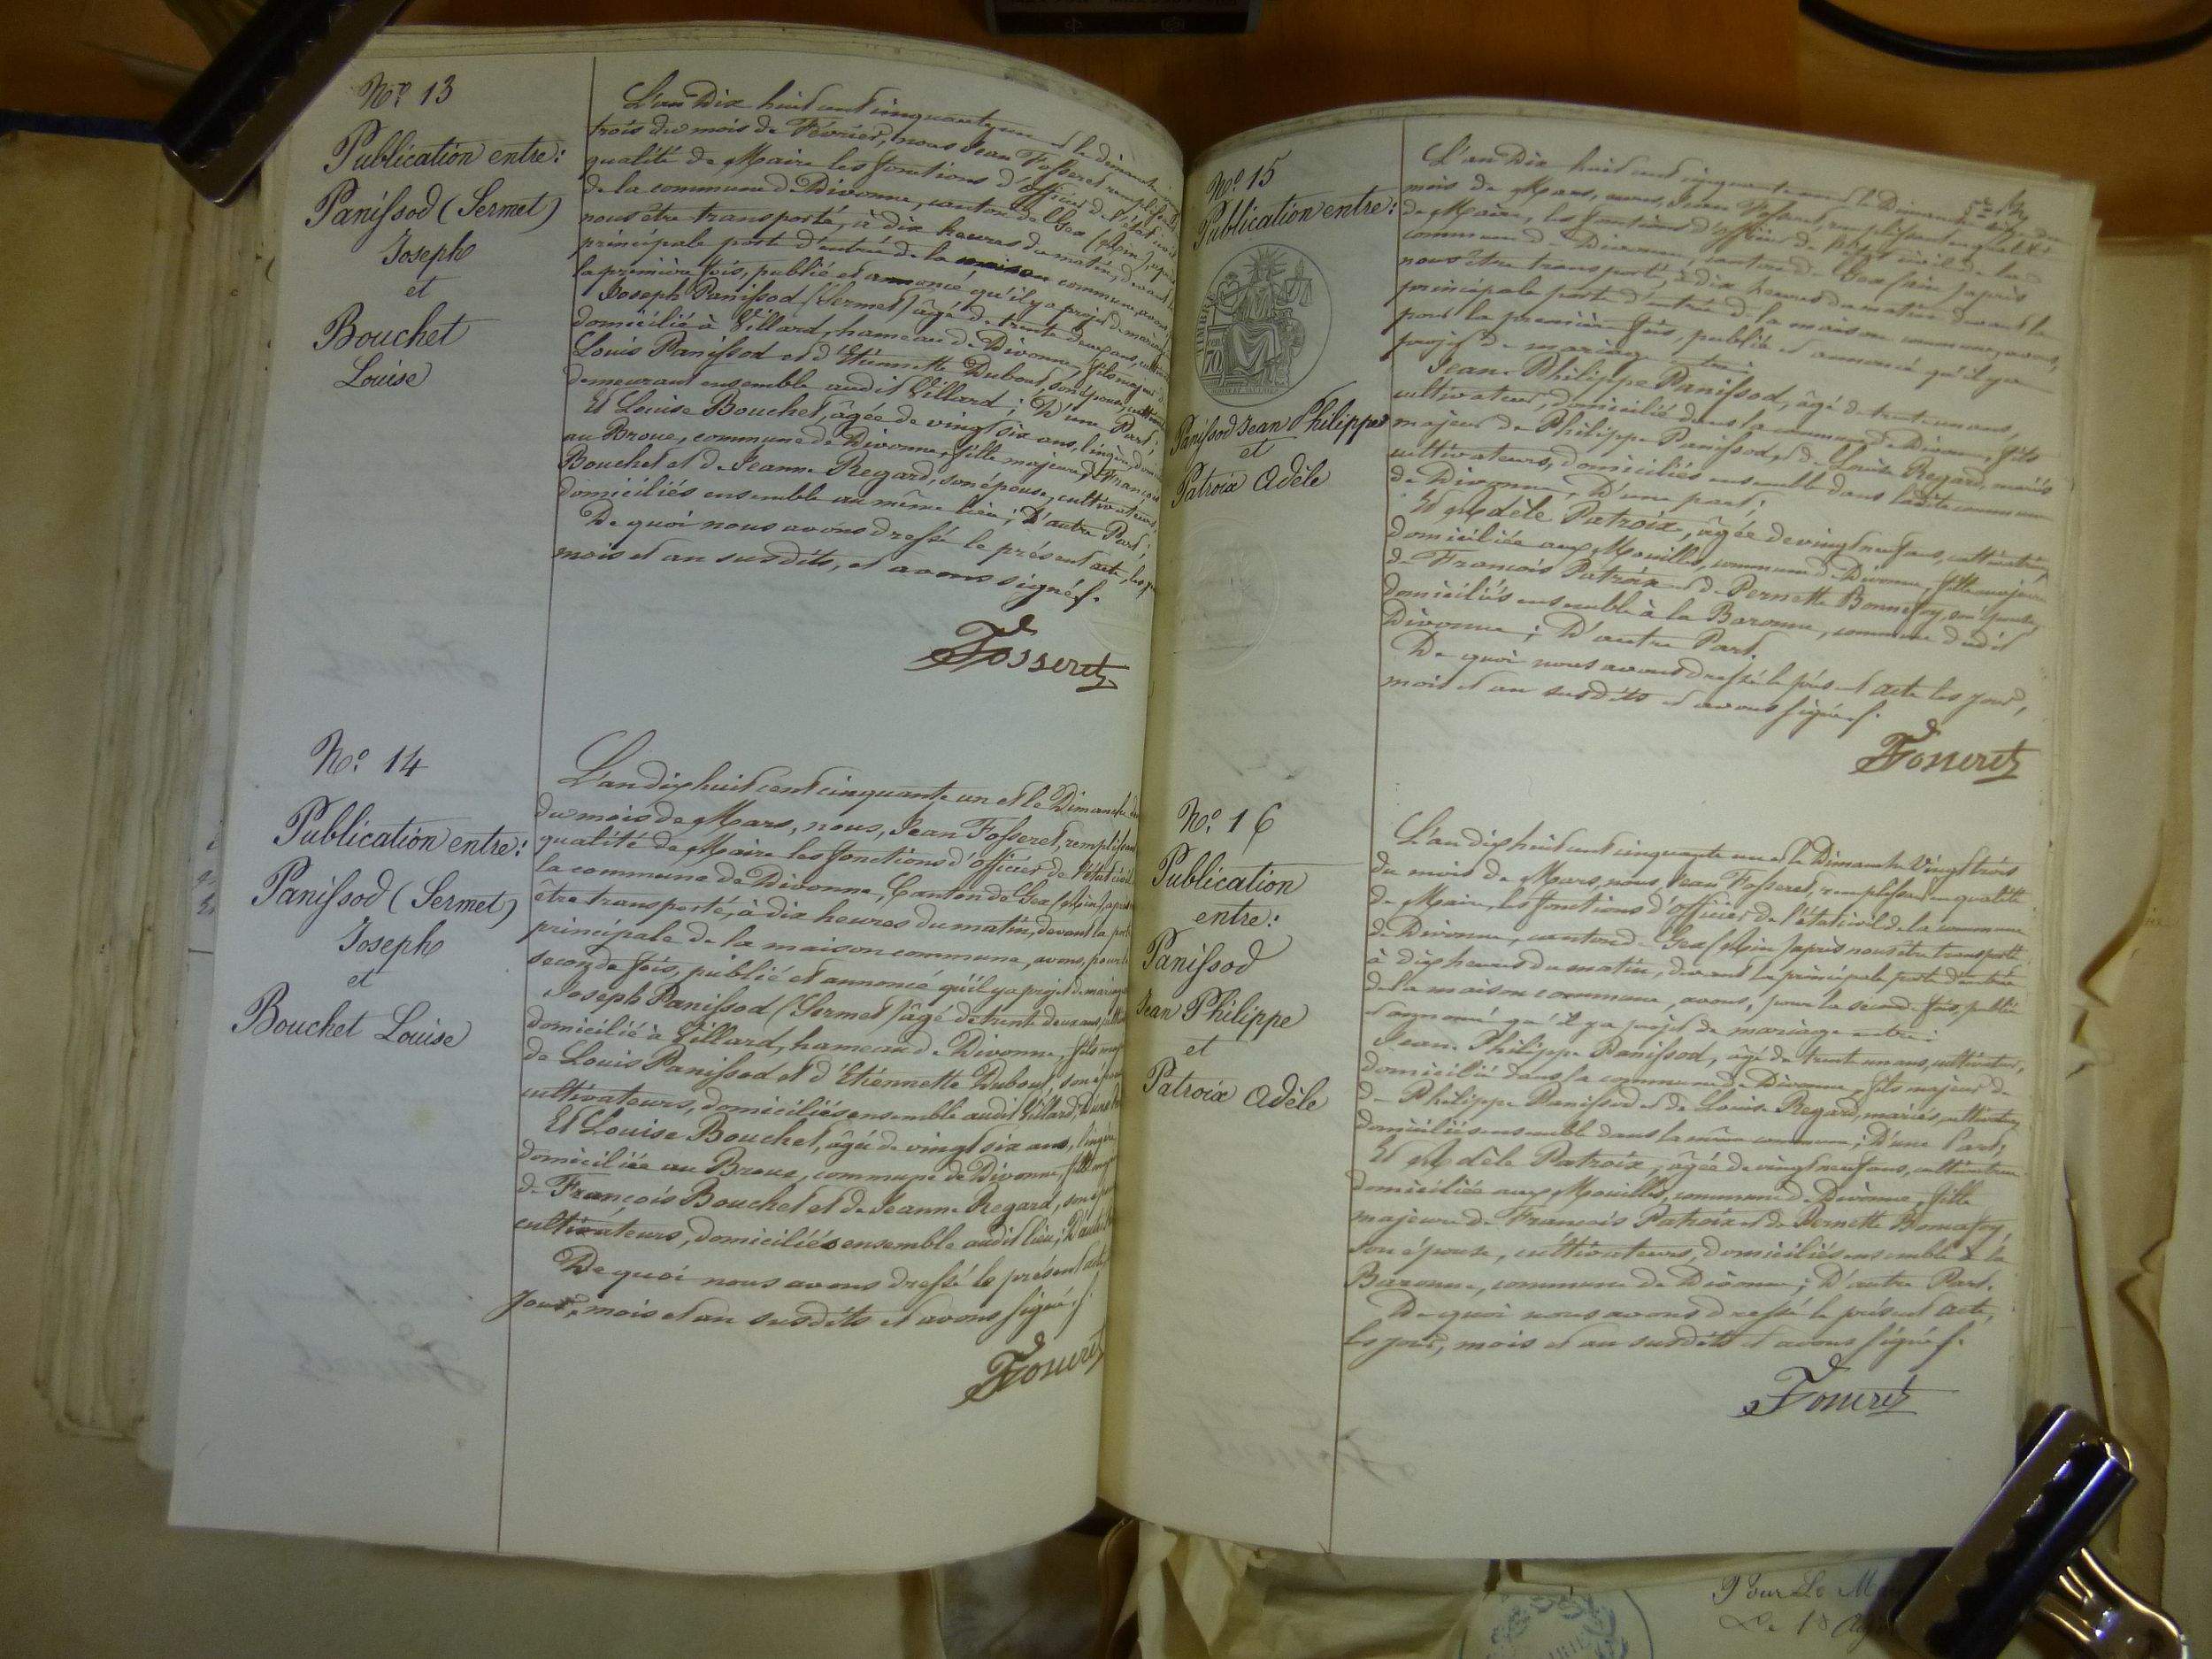 Nº 13
Publication entre:
Panissod (Sermet)
Joseph
et
Bouchet
Louise
L'an Dix huit cent cinquante un et le dimanche
trois du mois de Février, nous Jean Fosseret remplissant
qualité de Maire les fonctions d'officier de l'état civil
de la commune de Divonne, canton de Gex (Ain), après
nous être transporté, à dix heures du matin, devant la
principale porte d'entrée de la maison commune, avons,
la première fois, publié et annoncé qu'il y a projet de mariage
Joseph Panissod (Sermet) âgé de trente deux ans, cultivateur
domicilié à Villard, hameau de Divonne, fils majeur de
Louis Panissod et d'Etiennette Dubout, son épouse, cultivateurs
demeurant ensemble audit Villard; D'une Part;
Et Louise Bouchet, âgée de vingt six ans, lingère, domiciliée
au Broue, commune de Divonne, fille majeure de François
Bouchet et de Jeanne Regard, son épouse, cultivateurs,
domiciliés ensemble au même lieu; D'autre Part;
De quoi nous avons dressé le présent acte, les jour
mois et an susdits, et avons signé.
Fosseret
Nº 14
Publication entre:
Panissod (Sermet)
Joseph
et
Bouchet Louise
L'an dix huit cent cinquante un et le Dimanche
du mois de Mars, nous, Jean Fosseret, remplissant
qualité de Maire les fonctions d'officier de l'état civil
la commune de Divonne, Canton de Gex (Ain), après
être transporté, à dix heures du matin, devant la porte
principale de la maison commune, avons, pour la
seconde fois, publié et annoncé qu'il y a projet de mariage
Joseph Panissod (Sermet) âgé de trente deux ans, cultivateur
domicilié à Villard, hameau de Divonne, fils majeur
de Louis Panissod et d'Etiennette Dubout, son épouse
cultivateurs, domiciliés ensemble audit Villard; D'une Part
Et Louise Bouchet, âgée de vingt six ans, lingère,
domiciliée au Broue, commune de Divonne, fille majeure
de François Bouchet et de Jeanne Regard, son épouse
cultivateurs, domiciliés ensemble audit lieu; D'autre Part
De quoi nous avons dressé le présent acte
jour, mois et an susdits et avons signé.
Fosseret
Nº 15
Publication entre:
TIMBRE
70
Panissod Jean Philippe
et
Patroix Adèle
L'an Dix huit cent cinquante un et le Dimanche
mois de Mars, nous, Jean Fosseret, remplissant en qualité
de Maire, les fonctions d'officier de l'état civil de la
commune de Divonne, canton de Gex (Ain) après
nous être transporté, à dix heures du matin devant la
principale porte d'entrée de la maison commune, avons,
pour la première fois, publié et annoncé qu'il y a
projet de mariage entre:
Jean Philippe Panissod, âgé de trente un ans,
cultivateur, domicilié dans la commune de Divonne, fils
majeur de Philippe Panissod, et de Louise Regard, mariés
cultivateurs, domiciliés ensemble dans ladite commune
de Divonne, D'une part;
Et Adèle Patroix, âgée de vingt neuf ans, cultivatrice,
domiciliée aux Mouilles, commune de Divonne, fille majeure
de François Patroix et de Pernette Bonnefoy, son épouse,
domiciliés ensemble à la Baronne, commune dudit
Divonne; D'autre Part.
De quoi nous avons dressé le présent acte les jour,
mois et an susdits et avons signé.
Fosseret
Nº 16
Publication
entre:
Panissod
Jean Philippe
et
Patroix Adèle
L'an dix huit cent cinquante un et le Dimanche Vingt trois
du mois de Mars, nous, Jean Fosseret, remplissant en qualité
de Maire, les fonctions d'officier de l'état civil de la commune
de Divonne, canton de Gex (Ain) après nous être transporté
à dix heures du matin, devant la principale porte d'entrée
de la maison commune, avons, pour la seconde fois, publié
et annoncé qu'il y a projet de mariage entre:
Jean Philippe Panissod, âgé de trente un ans, cultivateur,
domicilié dans la commune de Divonne, fils majeur de
de Philippe Panissod et de Louise Regard, mariés, cultivateurs,
domiciliés ensemble dans la même commune; D'une Part;
Et Adèle Patroix, âgée de vingt neuf ans, cultivatrice
domiciliée aux Mouilles, commune de Divonne, fille
majeure de François Patroix et de Pernette Bonnefoy,
son épouse, cultivateurs, domiciliés ensemble à la
Baronne, commune de Divonne; D'autre Part.
De quoi nous avons dressé le présent acte,
les jour, mois et an susdits et avons signé.
Fosseret
Pour Le M
Le 18